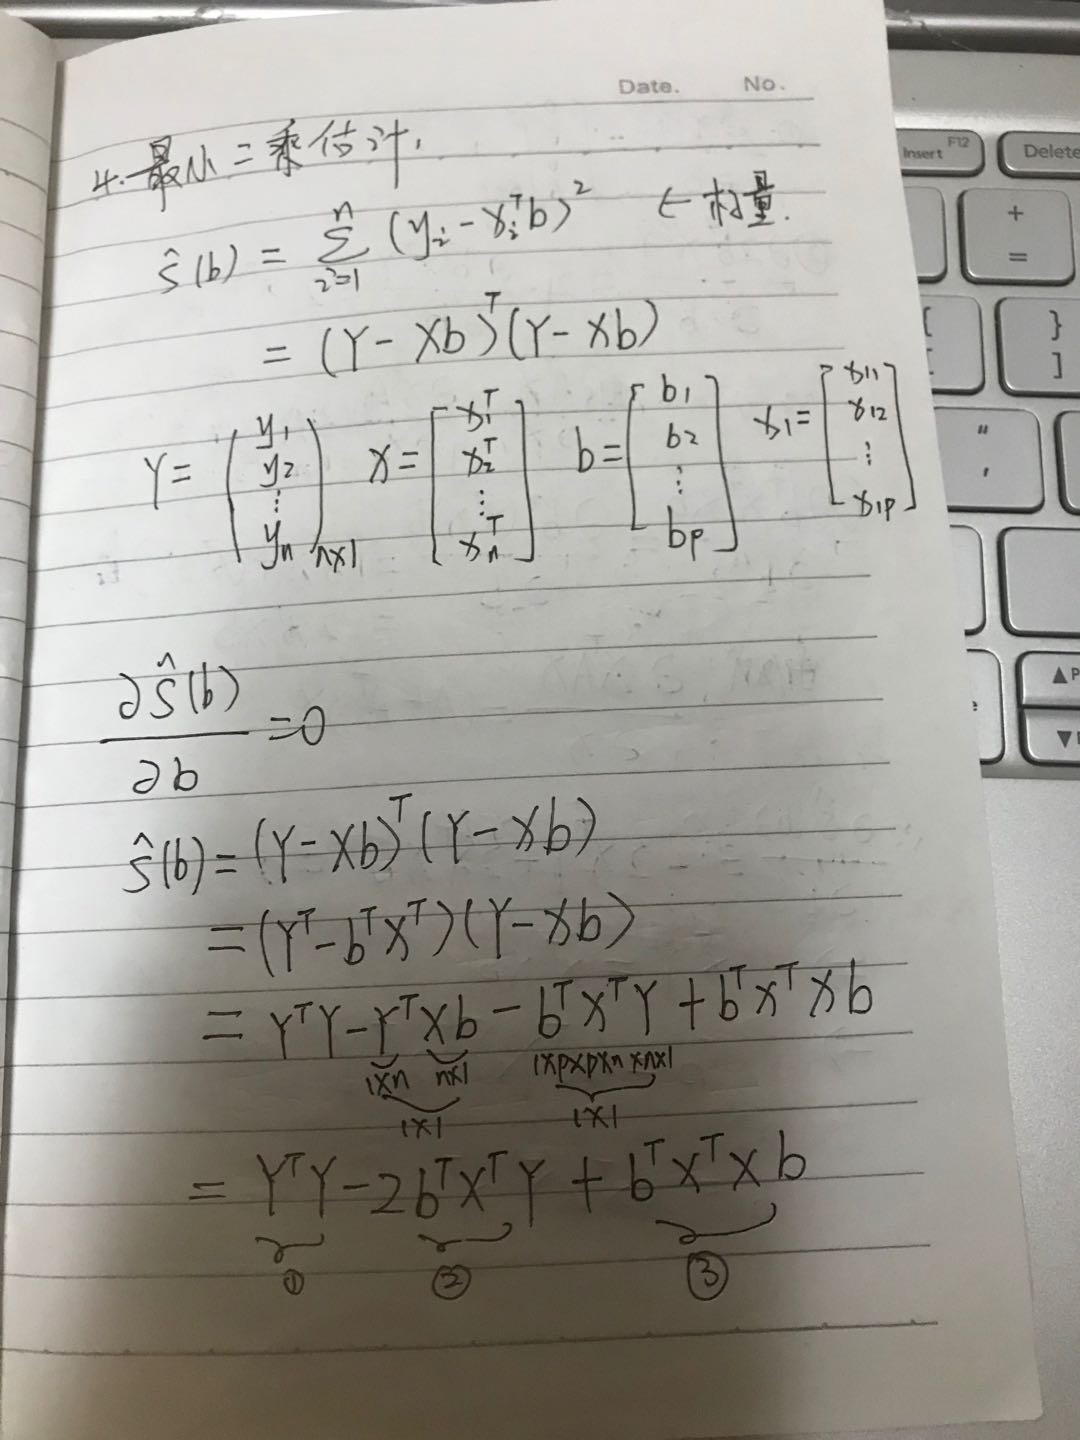 Date. No.
4. 最小二乘估计.
Ŝ(b) = Σ_{i=1}^{n} (y_i - x_i^T b)^2 ← 标量.
= (Y - Xb)^T (Y - Xb)
Y = (y_1 y_2 ⋮ y_n)_{n×1} X = [x_1^T x_2^T ⋮ x_n^T] b = [b_1 b_2 ⋮ b_p] x_1 = [x_11 x_12 ⋮ x_1p]
∂Ŝ(b)/∂b = 0
Ŝ(b) = (Y - Xb)^T (Y - Xb)
= (Y^T - b^T X^T)(Y - Xb)
= Y^T Y - Y^T X b - b^T X^T Y + b^T X^T X b
1×n n×1 1×p×p×n×n×1
1×1 1×1
= Y^T Y - 2b^T X^T Y + b^T X^T X b
① ② ③
Insert F12 Delete
+ =
{ [ } ]
" '
▲ P
▼